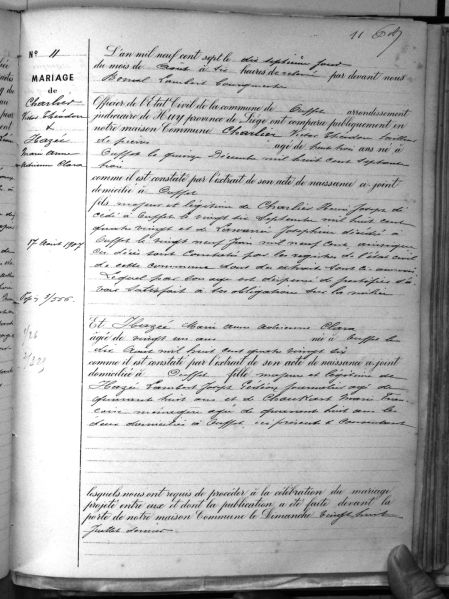 11
N° 11
MARIAGE
de
Charlier
Victor Théodore
&
Hazée
Marie Anne
Adrienne Clara
17 Août 1907
L'an mil neuf cent sept le dix septième jour
du mois de Août à six heures de relevé par devant nous
Bonal Lambert Bourgmestre
Officier de l'État Civil de la commune de Ouffet arrondissement
judiciaire de Huy province de Liége ont comparu publiquement en
notre maison Commune Charlier Victor Théodore
de pierres âgé de trente trois ans né à
Ouffet le quinze Décembre mil huit cent septante
trois
comme il est constaté par l'extrait de son acte de naissance ci-joint
domicilié à Ouffet
fils majeur et légitime de Charlier Henri Joseph dé
cédé à Ouffet le vingt six Septembre mil huit cent
quatre vingt et de Lavanne Joséphine décédée à
Ouffet le vingt neuf Juin mil neuf cent, ainsi que
ces décès sont constatés par les registres de l'état civil
de cette commune
Lequel par son âge est dispensé de justifier d'a
voir satisfait à ses obligations sur la milice
Et Hazée Marie Anne Adrienne Clara
âgée de vingt un ans née à Ouffet le
dix Août mil huit cent quatre vingt six
comme il est constaté par l'extrait de son acte de naissance ci-joint
domiciliée à Ouffet fille majeure et légitime de
Hazée Lambert Joseph âgé de
quarante huit ans et de Marie
ménagère âgée de quarante huit ans les
deux domiciliés à Ouffet, ici présents et consentants
lesquels nous ont requis de procéder à la célébration du mariage
projeté entre eux et dont la publication a été faite devant la
porte de notre maison Commune le Dimanche vingt huit
Juillet dernier